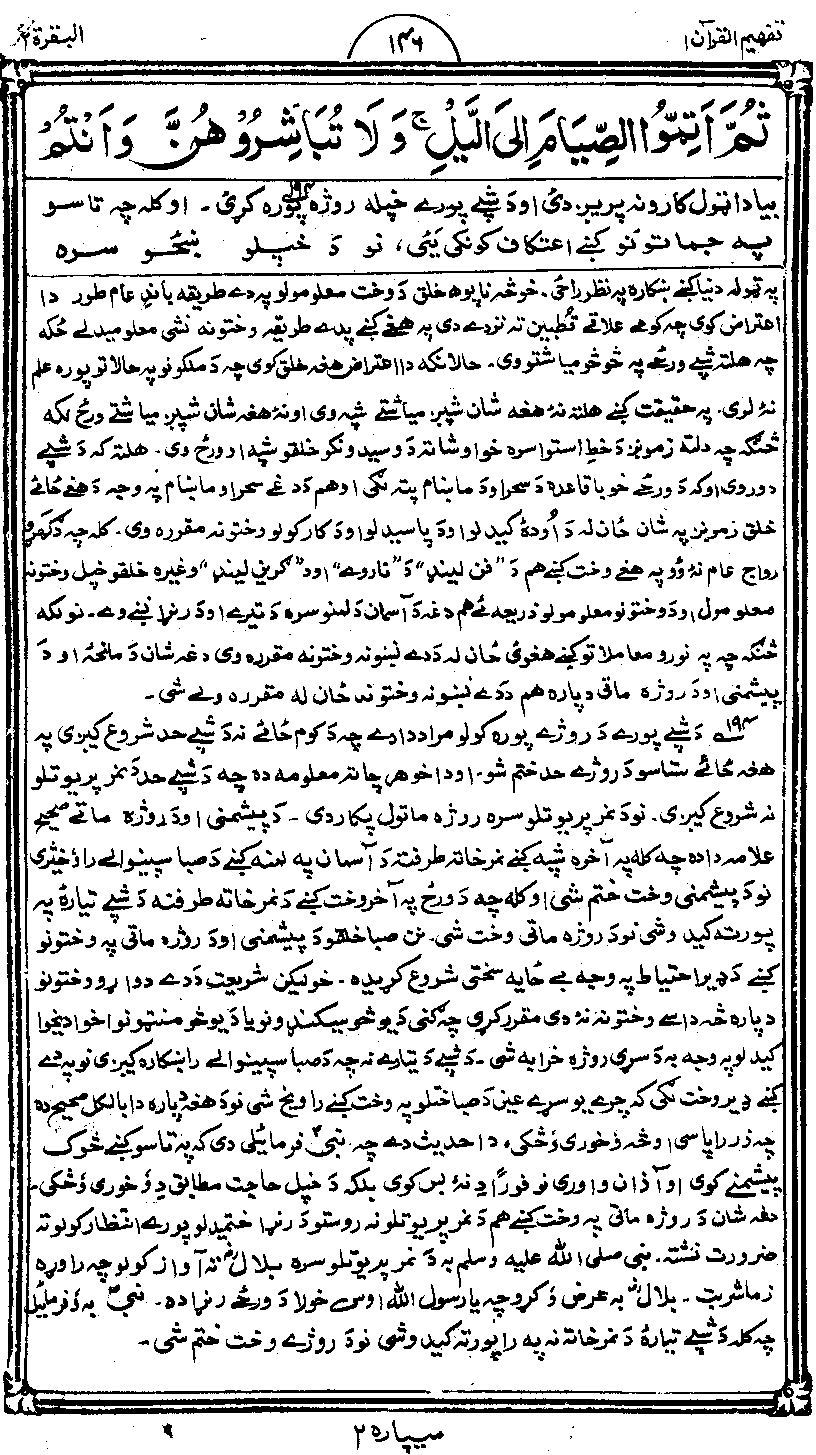 تفهیم القرآن ۱
۱۴۶
البقرة ۲
ثُمَّ اَتِمُّوا الصِّيَامَ اِلَى الَّيْلِ ۚ وَلَا تُبَاشِرُوْهُنَّ وَاَنْتُمْ
بیا دا ټول کارونه پریږدئ او د شپې پورې خپله روژه پوره کړئ ۱۹۴ ۔ او کله چه تاسو
په جماتونو کښې اعتکاف کونکی یئی، نو د خپلو ښځو سره
په ټوله دنیا کښې ښکاره په نظر راځی۔ خو څه ناپوهه خلق د وخت معلومولو په دې طریقه باندې عام طور دا
اعتراض کوی چه کومې علاقې قُطبین ته نزدې دی په هغې کښې پدې طریقه وختونه نشی معلومیدلې ځکه
چه هلته شپې ورځې په څو څو میاشتو وی۔ حالانکه دا اعتراض هغه خلق کوی چه د ملکونو په حالاتو پوره علم
نۀ لری۔ په حقیقت کښې هلته نۀ هغه شان شپږ میاشتې شپه وی او نۀ هغه شان شپږ میاشتې ورځ لکه
څنګه چه دلته زمونږ د خطِ استوا سره خوا و شا ته د وسیدونکو خلقو شپه او ورځ وی۔ هلته که د شپې
دور وی او که د ورځې خو باقاعده د سحر او د ماښام پته لګی او هم د دغې سحر او ماښام په وجه د هغې ځائې
خلق زمونږ په شان ځان له د اُودۀ کیدلو او د پاسیدلو او د کار کولو وختونه مقرره وی۔ کله چه د ګهړو
رواج عام نۀ وو په هغې وخت کښې هم د "فن لینډ" د "ناروے" او د "ګرین لینډ" وغیره خلقو خپل وختونه
معلومول او د وختونو معلومولو ذریعه ئے هم دغه د آسمان د لمنو سره د تیرې او د رنړا نښې وے۔ نو لکه
څنګه چه په نورو معاملاتو کښې هغوئی ځان له د دې نښو نه وختونه مقرره وی دغه شان د مانځۀ او د
پیشمنی او د روژه ماتی دپاره هم د دې نښو نه وختونه ځان له مقرره ولے شی۔
۱۹۴ د شپې پورې د روژې پوره کولو مراد دا دے چه د کوم ځائے نه د شپې حد شروع کیږی په
هغه ځائے ستاسو د روژې حد ختم شو۔ او دا خو هر چاته معلومه ده چه د شپې حد د نمر پریوتلو
نه شروع کیږی۔ نو د نمر پریوتلو سره روژه ماتول پکار دی۔ د پیشمنی او د روژه ماتے صحیح
علامه دا ده چه کله په آخره شپه کښې نمر خاته طرفته د آسمان په لمنه کښې د صبا سپینوالے راؤخیژی
نو د پیشمنی وخت ختم شی او کله چه د ورځ په آخر وخت کښې د نمر خاته طرفته د شپې تیارۀ په
پورته کیدو شی نو د روژه ماتی وخت شی۔ نن صبا خلقو د پیشمنی او د روژه ماتی په وختونو
کښې د ډیر احتیاط په وجه بے ځایه سختی شروع کړیده۔ خو لیکن شریعت د دے دواړو وختونو
دپاره څه داسے وختونه نۀ دی مقرر کړی چه ګنی د یو څو سیکنډونو یا د یو څو منټونو اخوا دیخوا
کیدلو په وجه به د سړی روژه خرابه شی۔ د شپې د تیارے نه چه د صبا سپینوالے راښکاره کیږی نو په دے
کښې ډیر وخت لګی که چرے یو سړے عین د صبا ختلو په وخت کښې راویخ شی نو د هغه دپاره دا بالکل صحیح ده
چه زر راپاسی او څه ؤخوری ؤڅکی، دا حدیث دے چه نبیؐ فرمائیلی دی که په تاسو کښې څوک
پیشمنے کوی او آذان واوری نو فورًا دِ نۀ بس کوی بلکه د خپل حاجت مطابق دِ ؤخوری ؤڅکی۔
دغه شان د روژه ماتی په وخت کښې هم د نمر پریوتلو نه روستو د رنړا ختمیدلو پورے انتظار کولو ته
ضرورت نشته۔ نبی صلی الله علیه وسلم به د نمر پریوتلو سره بلالؓ ته آواز کولو چه راوړه
زما شربت۔ بلالؓ به عرض ؤکړو چه یا رسول الله اوسے خو لا د ورځے رنړا ده۔ نبیؐ به ؤفرمائیل
چه کله د شپے تیارۀ د نمر خاته نه په راپورته کیدو شی نو د روژے وخت ختم شی۔
سیپاره ۲